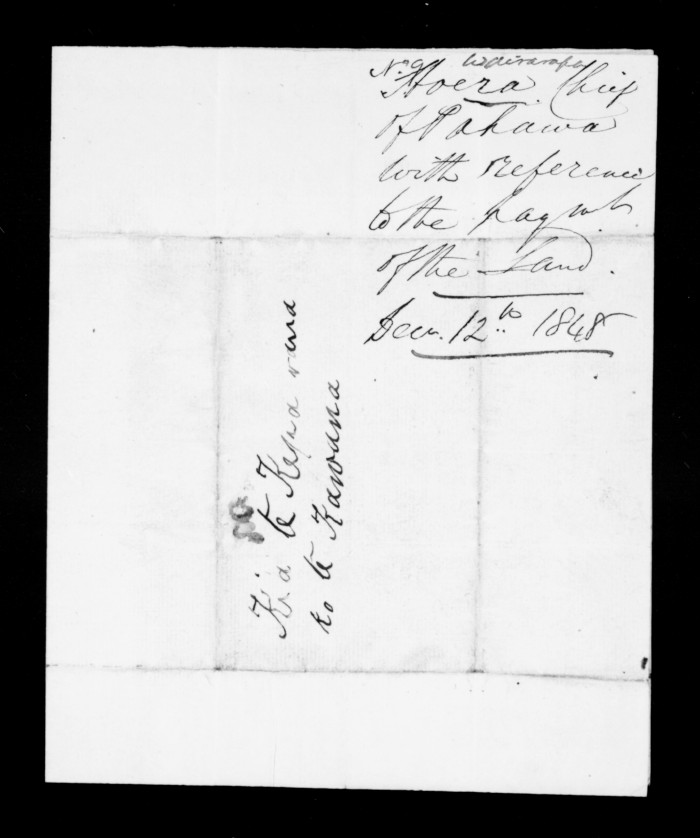 No. 9 Wairarapa
Hoera Chief
of Pahawa
with reference
to the paymt.
of the Land.
Decr. 12th 1848
Kia te Kepa raua
ko te Kawana